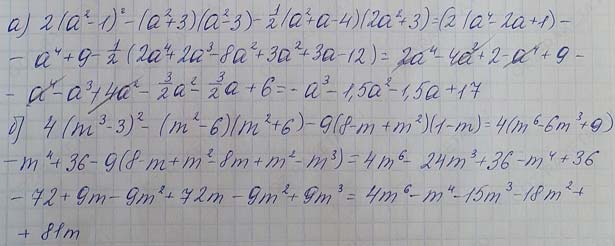 а) 2(a²-1)²-(a²+3)(a²-3)-½(a²+a-4)(2a²+3)=(2(a⁴-2a+1)-
-a⁴+9-½(2a⁴+2a³-8a²+3a²+3a-12)=2a⁴-4a²+2-a⁴+9-
-a⁴-a³+4a²-3/2a²-3/2a+6=-a³-1,5a²-1,5a+17
б) 4(m³-3)²-(m²-6)(m²+6)-9(8-m+m²)(1-m)=4(m⁶-6m³+9)
-m⁴+36-9(8-m+m²-8m+m²-m³)=4m⁶-24m³+36-m⁴+36
-72+9m-9m²+72m-9m²+9m³=4m⁶-m⁴-15m³-18m²+
+81m